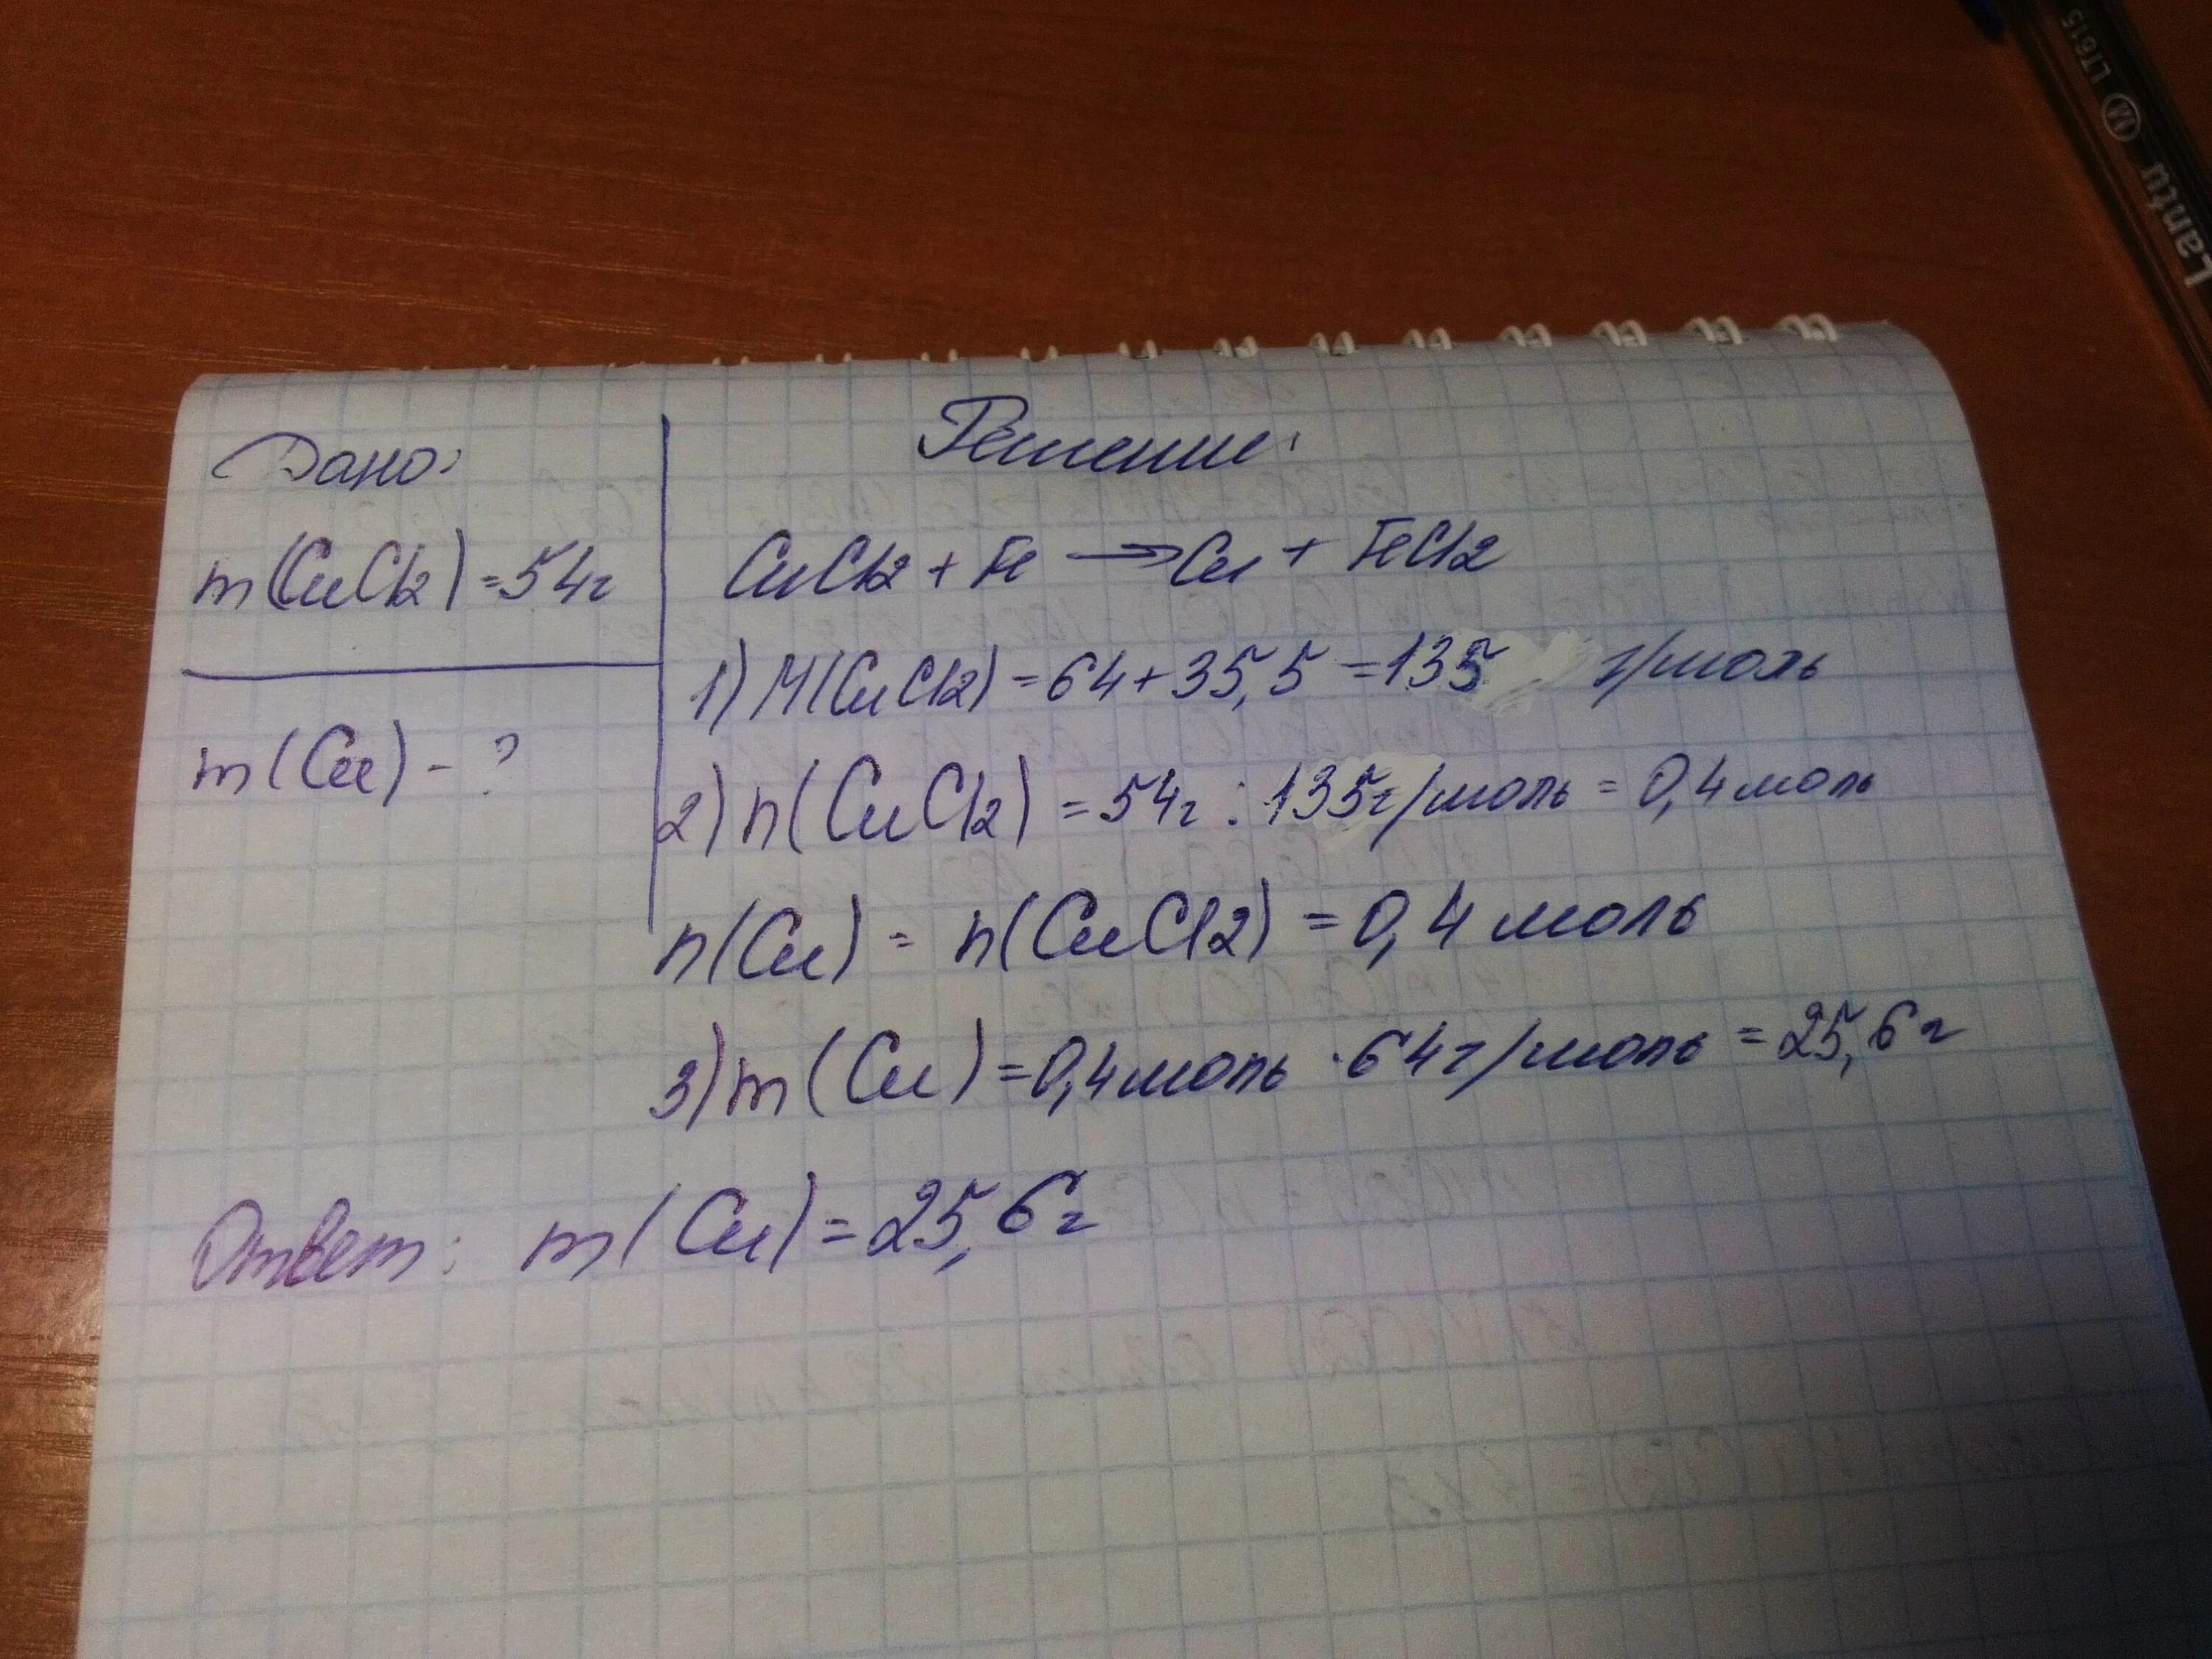 Lantu M LT615
Дано:
m(CuCl2)=54г
m(Cu) - ?
Решение:
CuCl2 + Fe → Cu + FeCl2
1) M(CuCl2) = 64 + 35,5 = 135 г/моль
2) n(CuCl2) = 54г : 135г/моль = 0,4 моль
n(Cu) = n(CuCl2) = 0,4 моль
3) m(Cu) = 0,4 моль · 64г/моль = 25,6 г
Ответ: m(Cu) = 25,6г